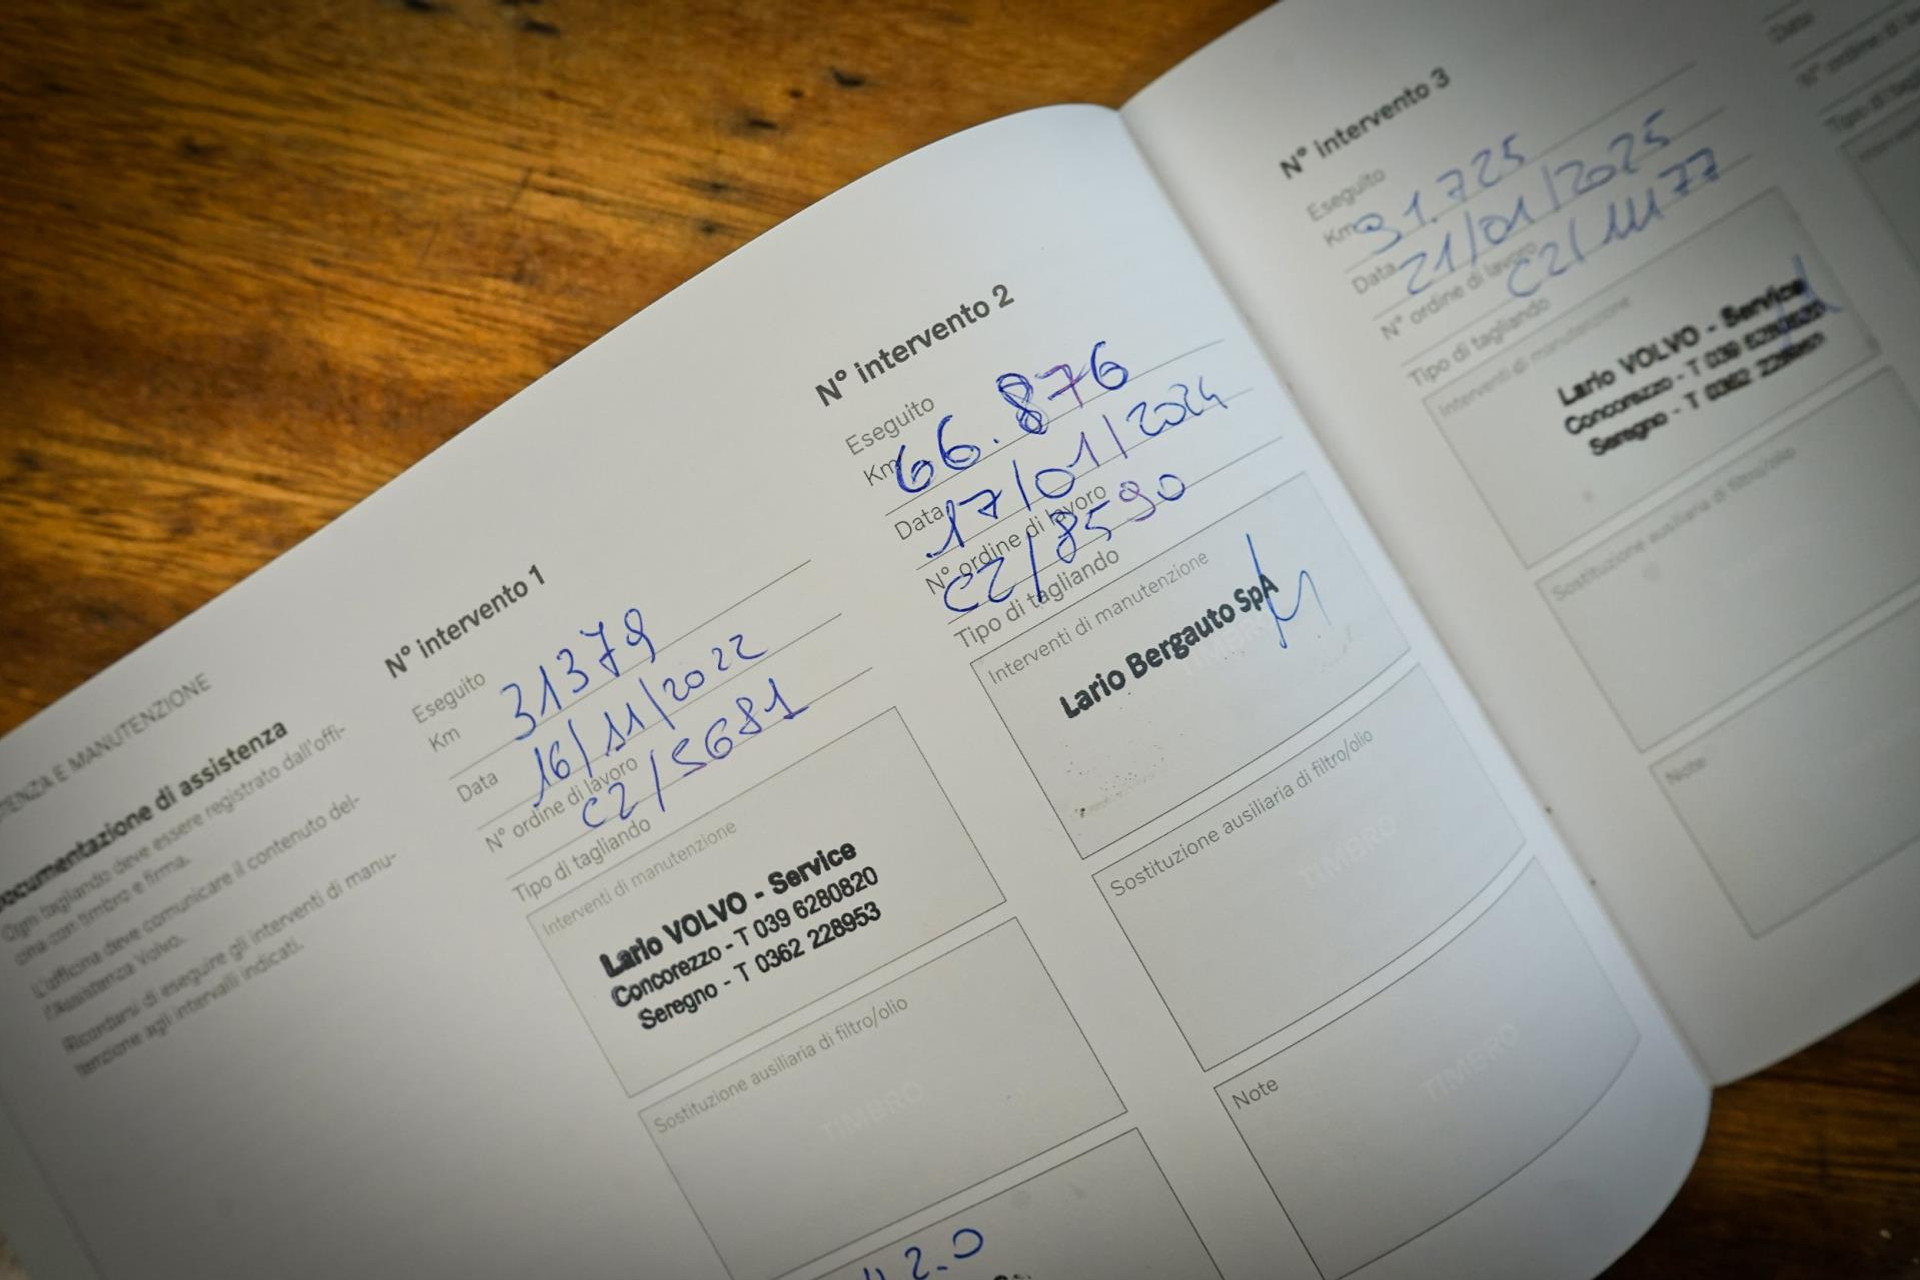 TENZA E MANUTENZIONE
ocumentazione di assistenza
Ogni tagliando deve essere registrato dall'offi-
cina con timbro e firma.
L'officina deve comunicare il contenuto del-
l'Assistenza Volvo.
Ricordarsi di eseguire gli interventi di manu-
tenzione agli intervalli indicati.
N° intervento 1
Eseguito
Km 31379
Data 16/11/2022
N° ordine di lavoro
C2/5681
Tipo di tagliando
Interventi di manutenzione
Lario VOLVO - Service
Concorezzo - T 039 6280820
Seregno - T 0362 228953
Sostituzione ausiliaria di filtro/olio
TIMBRO
2.0
N° intervento 2
Eseguito
Km 66.876
Data 17/01/2024
N° ordine di lavoro
C2/8590
Tipo di tagliando
Interventi di manutenzione
Lario Bergauto SpA
Sostituzione ausiliaria di filtro/olio
TIMBRO
Note
TIMBRO
N° intervento 3
Eseguito
Km 91.725
Data 21/01/2025
N° ordine di lavoro
C2/11177
Tipo di tagliando
Interventi di manutenzione
Lario VOLVO - Service
Concorezzo - T 039
Seregno - T 0362
Sostituzione ausiliaria di filtro/olio
Note
Data
N° ordine di la
Tipo di tagl